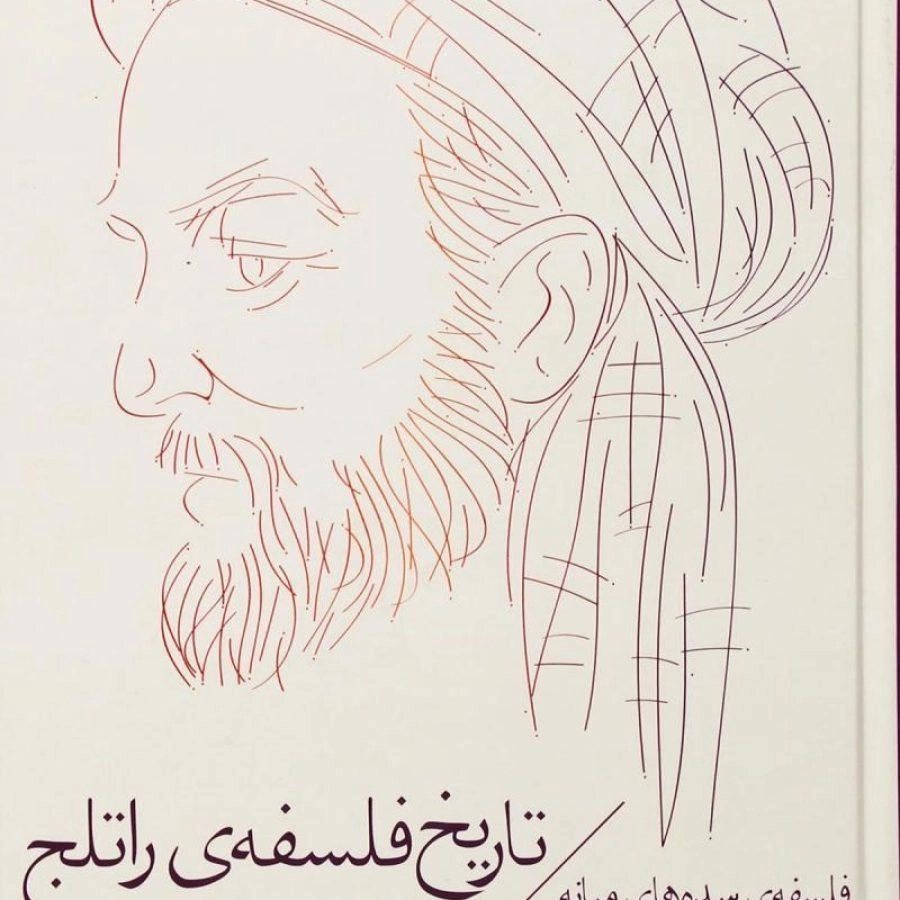 تاریخ فلسفه‌ی راتلج
فلسفه‌ی سده‌های میانه